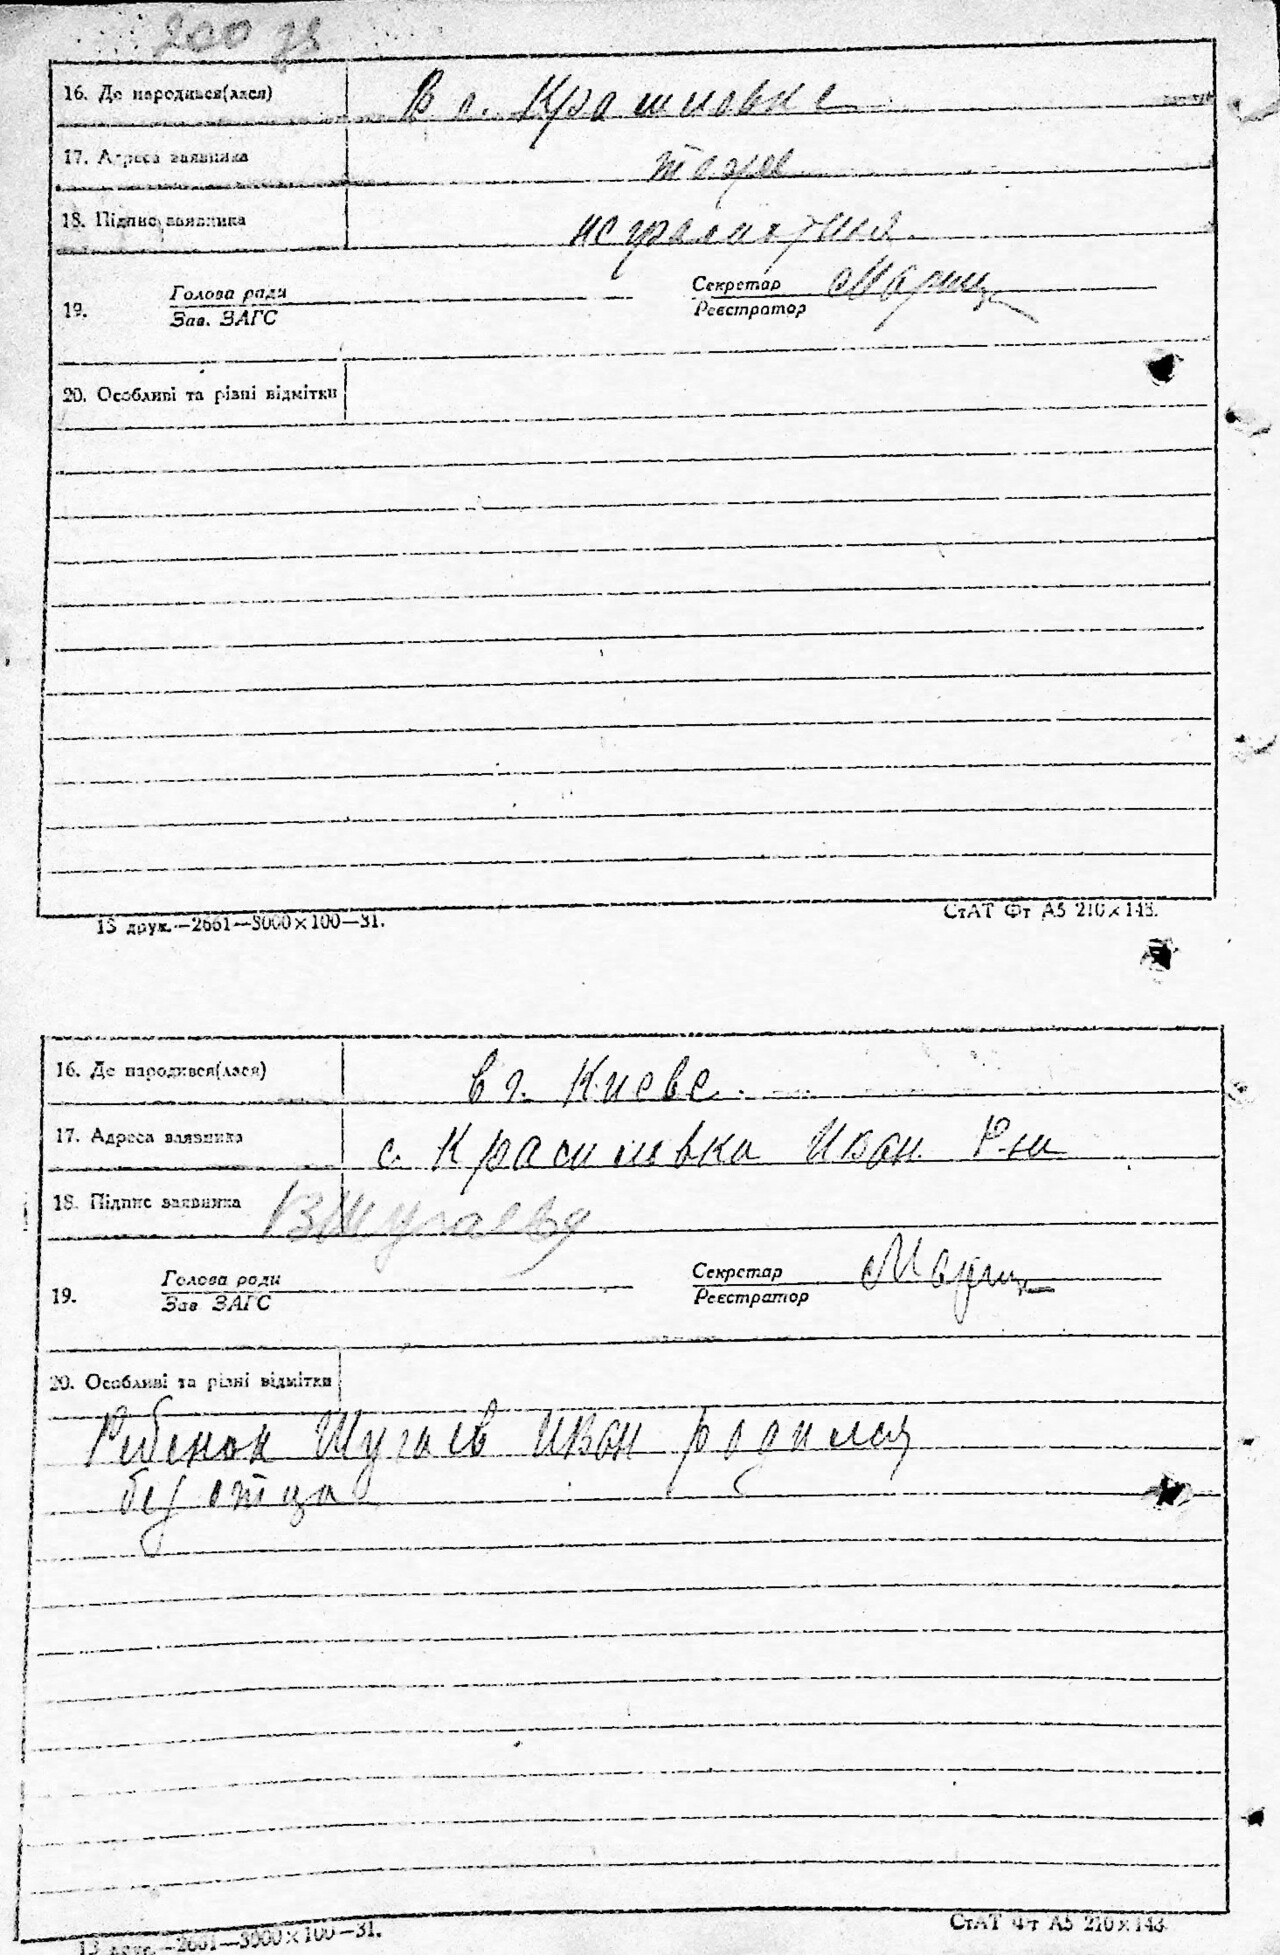 200 зв
16. Де народився(лася) В с. Красиловке
17. Адреса заявника тоже
18. Підпис заявника неграмотная
19. Голова ради Секретар
Зав. ЗАГС Реєстратор
20. Особливі та різні відмітки
13 друк.—2661—3000×100—31. СтАТ Фт А5 210×148.
16. Де народився(лася) в г. Киеве
17. Адреса заявника с. Красиловка Иван Р-на
18. Підпис заявника ВШугаева
19. Голова ради Секретар
Зав ЗАГС Реєстратор
20. Особливі та різні відмітки
Ребенок Шугаев Иван родился
без отца
13 друк.—2661—3000×100—31. СтАТ Фт А5 210×148